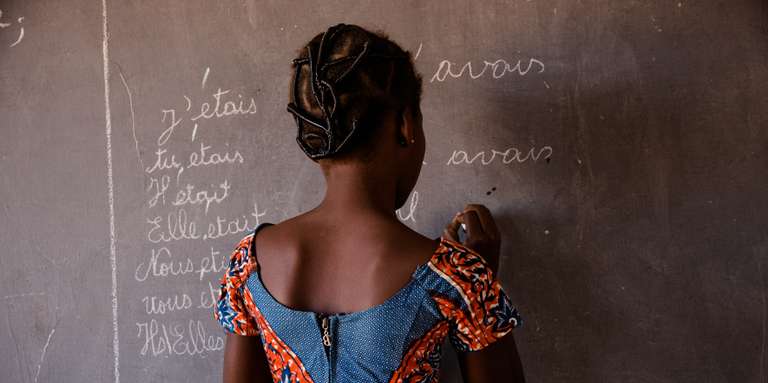 J'étais
tu étais
Il était
Elle était
Nous
vous
Ils/Elles
avais
avais